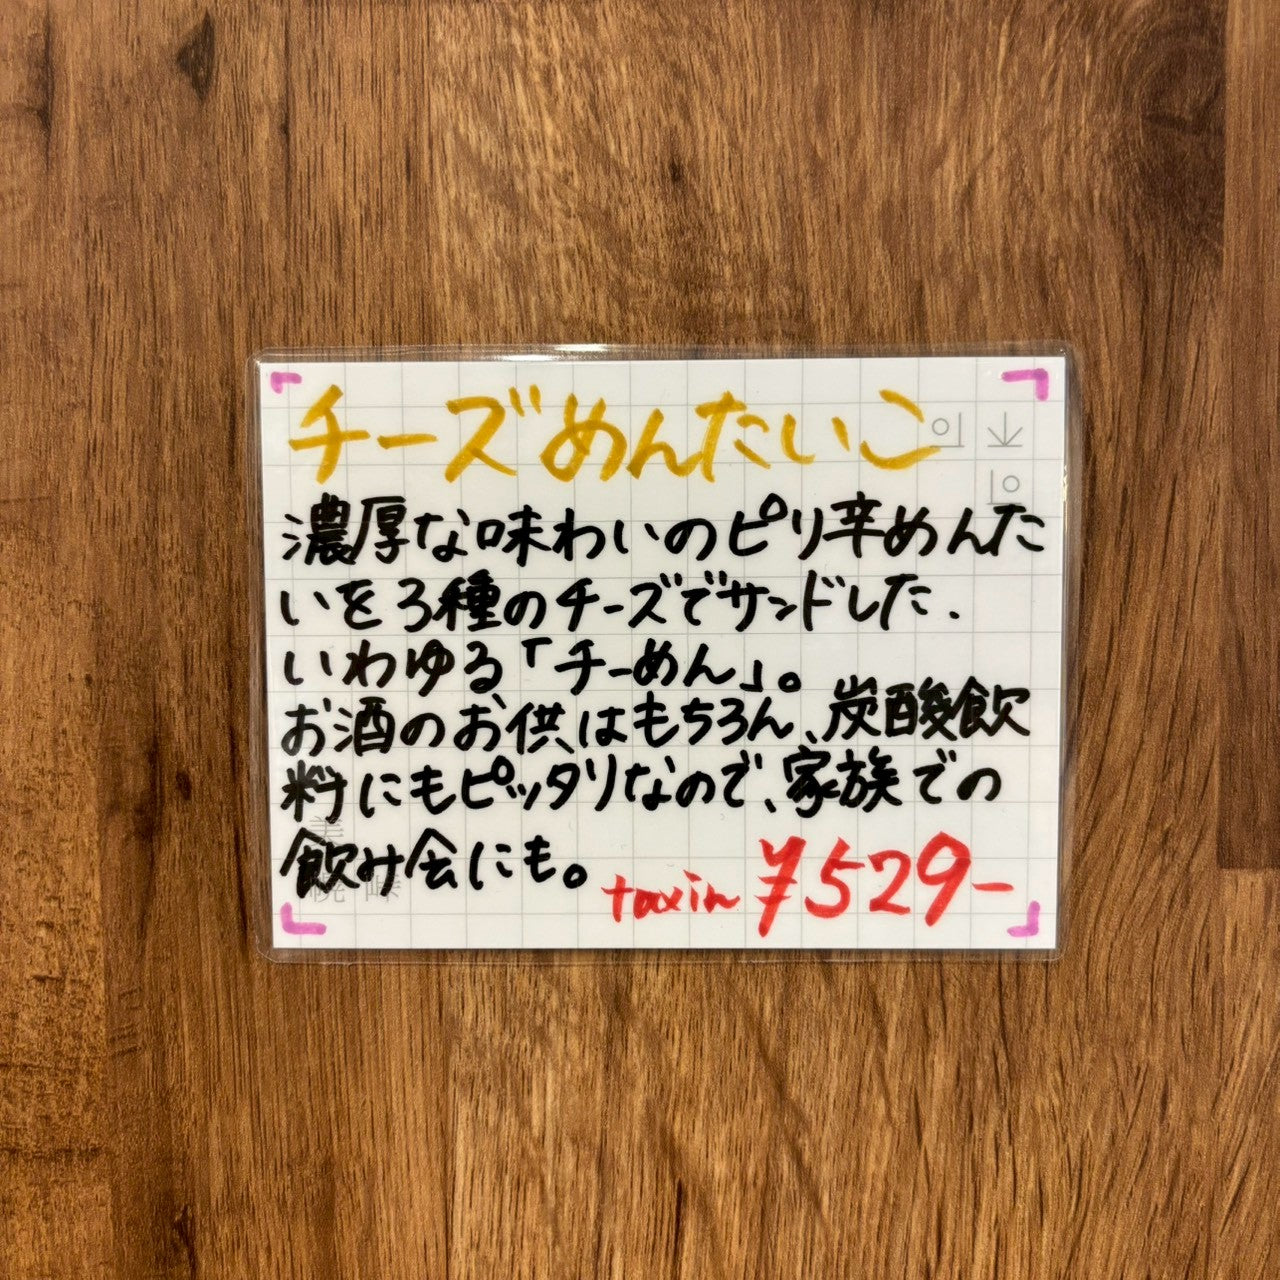 チーズめんたいこ
濃厚な味わいのピリ辛めんた
いを3種のチーズでサンドした、
いわゆる「チーめん」。
お酒のお供はもちろん、炭酸飲
料にもピッタリなので、家族での
飲み会にも。
taxin ¥529-